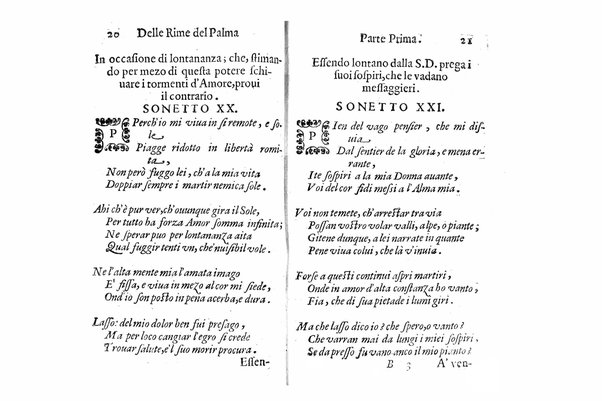 20 Delle Rime del Palma
In occasione di lontananza; che, stiman-
do per mezo di questa potere schi-
uare i tormenti d'Amore, proui
il contrario.
SONETTO XX.
PErch'io mi viua in sì remote, e so-
le
Piagge ridotto in libertà romi-
ta,
Non però fuggo lei, ch'a la mia vita
Doppiar sempre i martir nemica sole.
Ahi ch'è pur ver, ch'ouunque gira il Sole,
Per tutto ha forza Amor somma infinita;
Ne sperar puo per lontananza aita
Qual fuggir tenti vn, che'nuisibil vole.
Ne l'alta mente mia l'amata imago
E' fissa, e viua in mezo al cor mi siede,
Ond'io son posto in pena acerba, e dura.
Lasso: del mio dolor ben fui presago,
Ma per loco cangiar l'egro si crede
Trouar salute, e'l suo morir procura.
Essen-
Parte Prima. 21
Essendo lontano dalla S.D. prega i
suoi sospiri, che le vadano
messaggieri.
SONETTO XXI.
PIen del vago pensier, che mi dis-
uia
Dal sentier de la gloria, e mena er-
rante,
Ite sospiri a la mia Donna auante,
Voi del cor fidi messi a l'Alma mia.
Voi non temete, ch'arrestar tra via
Possan vostro volar valli, alpe, o piante;
Gitene dunque, a lei narrate in quante
Pene viua colui, che l'ama, e stia.
Forse a questi continui aspri martiri,
Onde in amor d'alta constanza ho vanto,
Fia, che di sua pietade i lumi giri.
Ma che lasso dico io? che spero, o vanto?
Che varran mai da lungi i miei sospiri,
Se da presso fu vano anco il mio pianto?
B 3 A' ven-